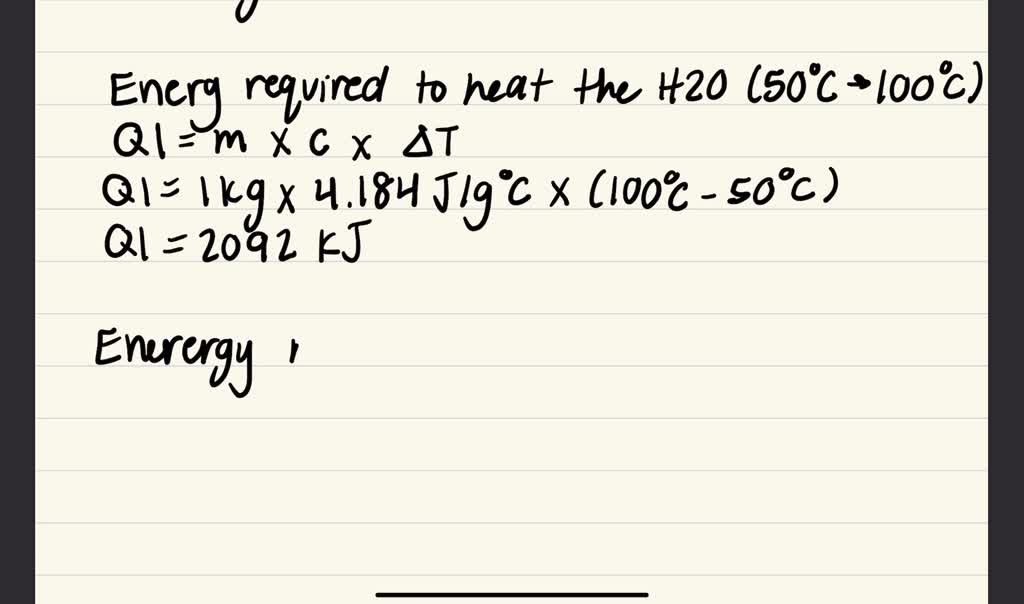 Energ required to heat the H2O (50°C → 100°C)
Q1 = m x c x ΔT
Q1 = 1kg x 4.184 J/g°C x (100°C - 50°C)
Q1 = 2092 kJ
Enerergy